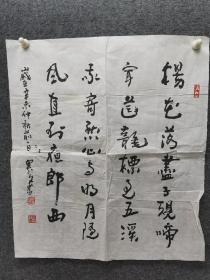 楊花落盡子規啼
聞道龍標過五溪
我寄愁心与明月隨
風直到夜郎西
歲在辛未仲秋